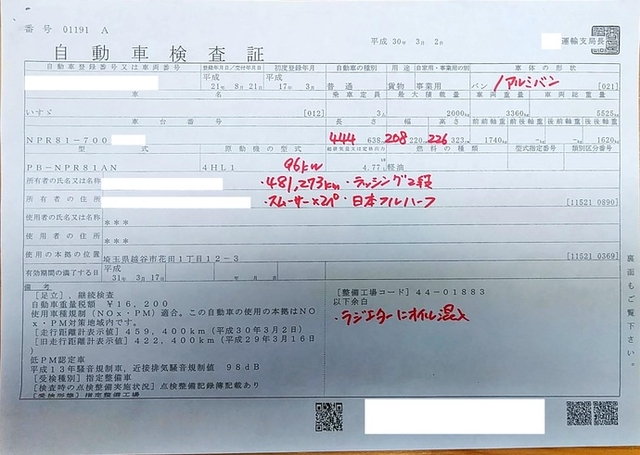 番号 01191 A
平成 30年 3月 2日
運輸支局長
自動車検査証
自動車登録番号又は車両番号 登録年月日/交付年月日 初度登録年月 自動車の種別 用途 自家用・事業用の別 車体の形状
平成 21年 8月21日 平成 17年 3月 普通 貨物 事業用 バン /アルミバン [021]
車名 乗車定員 最大積載量 車両重量 車両総重量
いすゞ [012] 3人 2000kg 3360kg 5525kg
車台番号 長さ 幅 高さ 前前軸重 前後軸重 後前軸重 後後軸重
NPR81-700 444 638 208 220 226 323 1740kg -kg -kg 1620kg
型式 原動機の型式 燃料の種類 型式指定番号 類別区分番号
PB-NPR81AN 4HL1 96kw 4.77 軽油
所有者の氏名又は名称 ・481,273km ・ラッシング2段
所有者の住所 ・スムーサー×2ペ ・日本フルハーフ [11521 0890]
使用者の氏名又は名称 ***
使用者の住所 ***
使用の本拠の位置 埼玉県越谷市花田1丁目12-3 [11521 0369]
有効期間の満了する日 平成 31年 3月17日
裏面もご覧下さい。
備考
[足立], 継続検査
自動車重量税額 ¥16,200
使用車種規制(NOx・PM)適合。この自動車の使用の本拠はNO
x・PM対策地域内です。
[走行距離計表示値] 459,400km(平成30年3月2日)
[旧走行距離計表示値] 422,400km(平成29年3月16日
)
低PM認定車
平成13年騒音規制車, 近接排気騒音規制値 98dB
[受検種別] 指定整備車
[検査時の点検整備実施状況] 点検整備記録簿記載あり
[整備工場コード] 44-01883
以下余白
・ラジエターにオイル混入